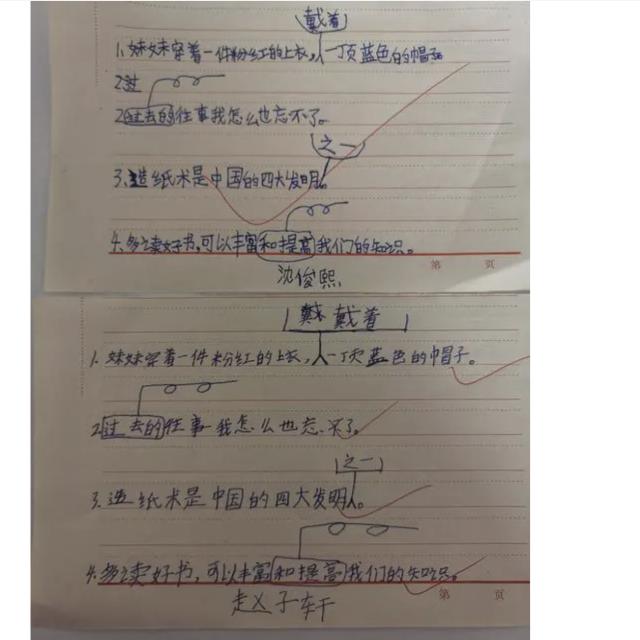 戴着
1.妹妹穿着一件粉红的上衣,一顶蓝色的帽子。
2过
2.过去的往事我怎么也忘不了。
之一
3.造纸术是中国的四大发明。
4.多读好书,可以丰富和提高我们的知识。
第 页
沈俊熙
戴着
1.妹妹穿着一件粉红的上衣,一顶蓝色的帽子。
2.过去的往事我怎么也忘不了。
之一
3.造纸术是中国的四大发明。
4.多读好书,可以丰富和提高我们的知识。
第 页
赵子轩